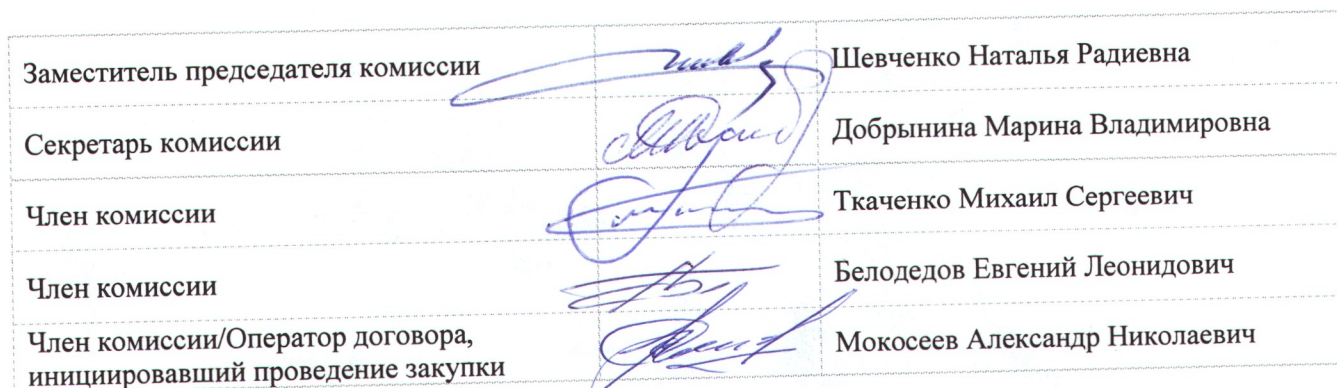 Заместитель председателя комиссии Шевченко Наталья Радиевна
Секретарь комиссии Добрынина Марина Владимировна
Член комиссии Ткаченко Михаил Сергеевич
Член комиссии Белодедов Евгений Леонидович
Член комиссии/Оператор договора,
инициировавший проведение закупки Мокосеев Александр Николаевич